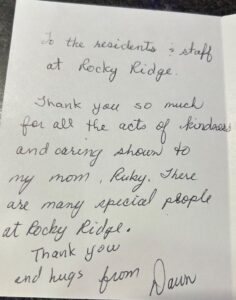 To the residents & staff
at Rocky Ridge.
Thank you so much
for all the acts of kindness
and caring shown to
my mom, Ruby. There
are many special people
at Rocky Ridge.
Thank you
and hugs from Dawn